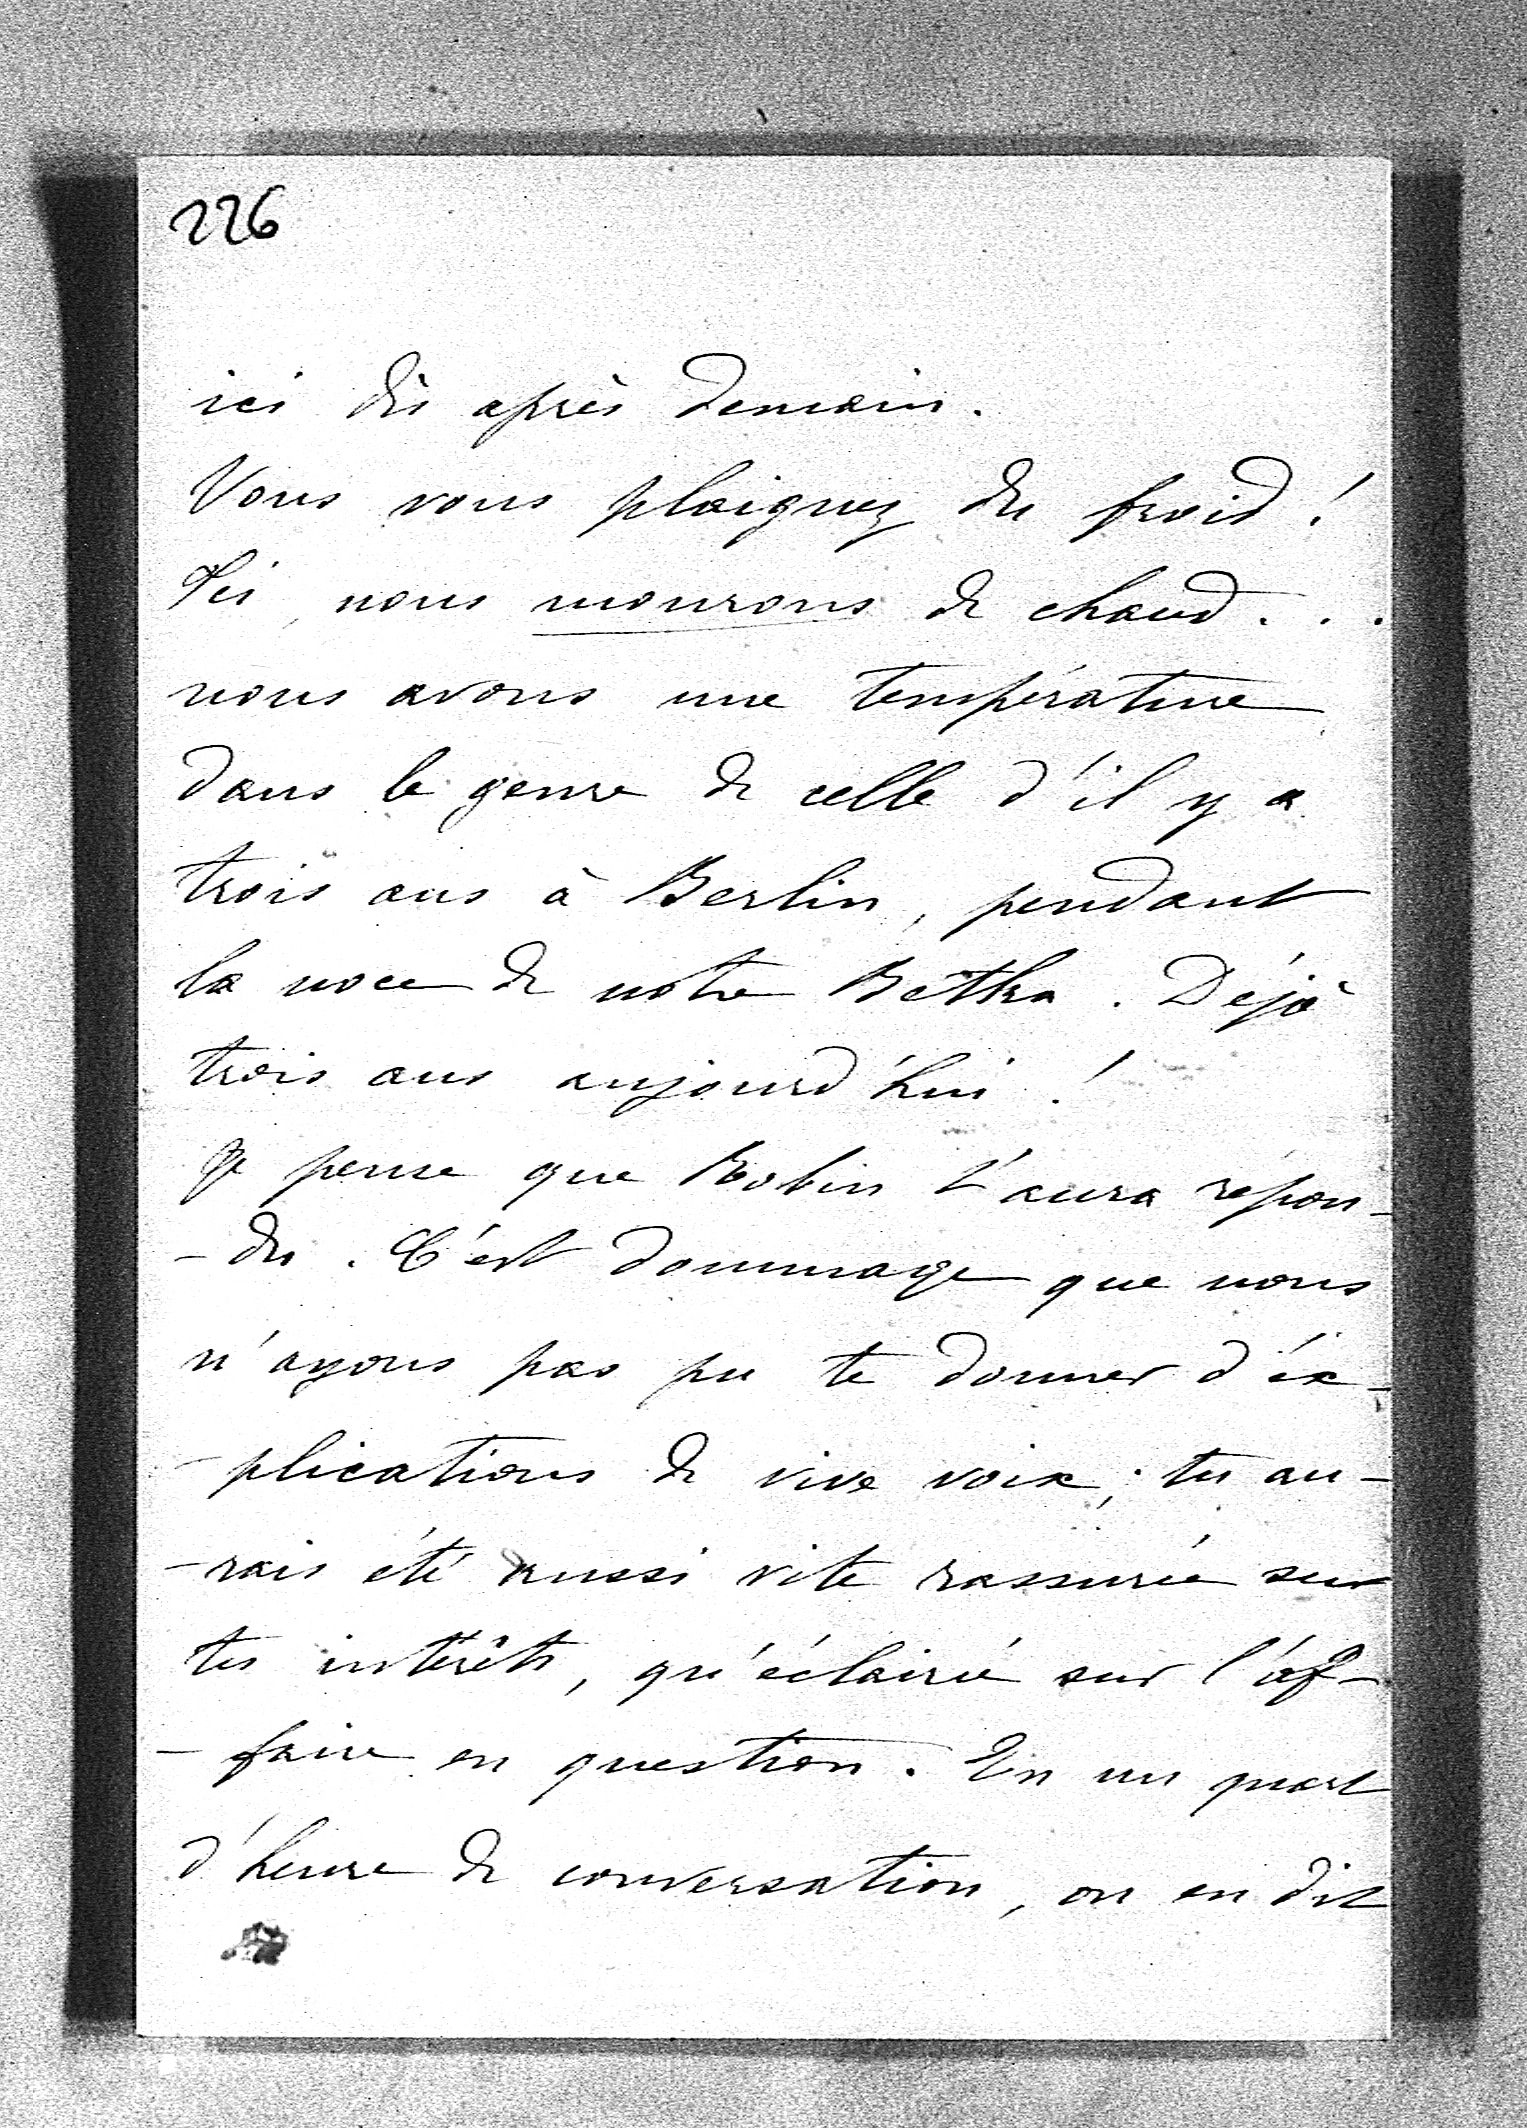 226
ici dès après demain.
Vous vous plaignez du froid !
Ici, nous mourons de chaud...
nous avons une température
dans le genre de celle d'il y a
trois ans à Berlin, pendant
la noce de notre Betka. Déjà
trois ans aujourd'hui !
Je pense que Robin t'aura répon-
-du. C'est dommage que nous
n'ayons pas pu te donner d'éx-
-plications de vive voix; tu au-
-rais été aussi vite rassurée sur
tes intérêts, qu'éclairée sur l'af-
-faire en question. En un quart
d'heure de conversation, on en dit